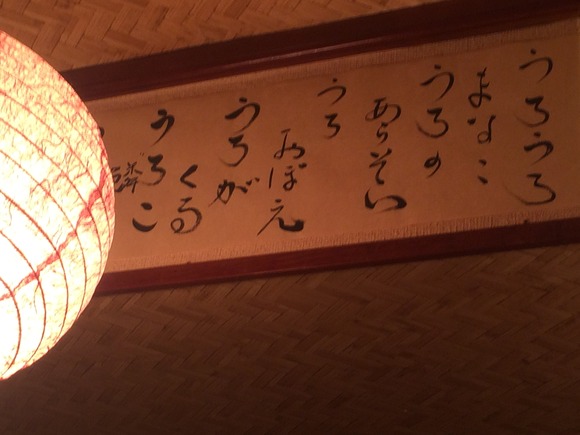 うろうろ
まなこ
うろの
あらそい
うろ
おぼえ
うろが
くる
うろこ